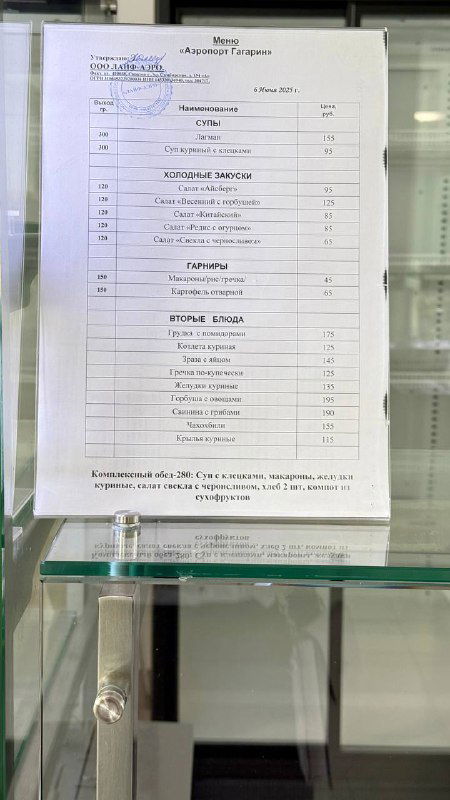 Меню
«Аэропорт Гагарин»
Утверждаю
ООО ЛАЙФ-АЭРО.
6 Июня 2025 г.
Выход гр. Наименование Цена руб.
СУПЫ
300 Лагман 155
300 Суп куриный с клецками 95
ХОЛОДНЫЕ ЗАКУСКИ
120 Салат «Айсберг» 95
120 Салат «Весенний с горбушей» 125
120 Салат «Китайский» 85
120 Салат «Редис с огурцом» 85
120 Салат «Свекла с черносливом» 65
ГАРНИРЫ
150 Макароны/рис/гречка/ 45
150 Картофель отварной 65
ВТОРЫЕ БЛЮДА
Грудка с помидорами 175
Котлета куриная 125
Зраза с яйцом 145
Гречка по-купечески 125
Желудки куриные 135
Горбуша с овощами 195
Свинина с грибами 190
Чахохбили 155
Крылья куриные 115
Комплексный обед-280: Суп с клецками, макароны, желудки
куриные, салат свекла с черносливом, хлеб 2 шт, компот из
сухофруктов